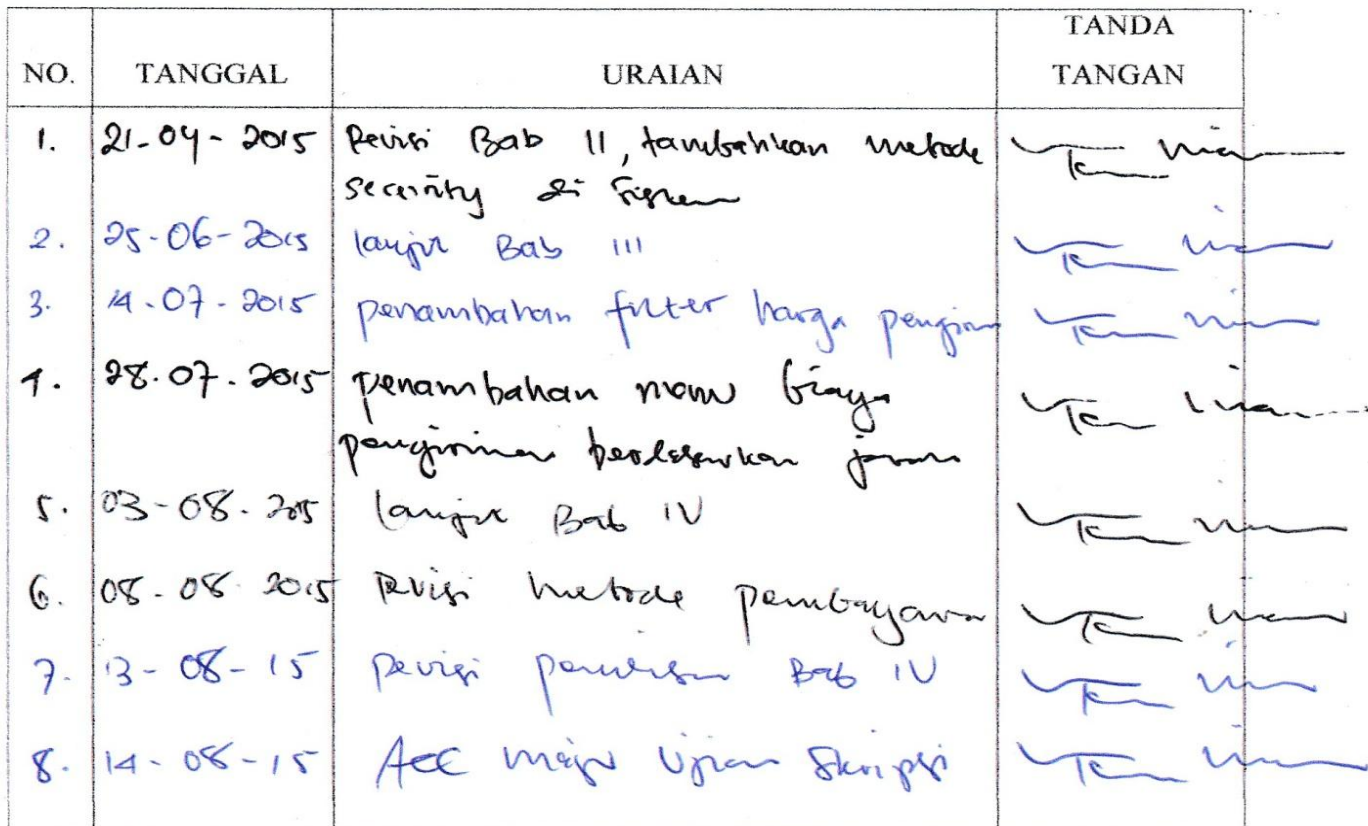 NO. TANGGAL URAIAN TANDA TANGAN
1. 21-04-2015 Revisi Bab II, tambahkan metode
security di sistem
2. 25-06-2015 lanjut Bab III
3. 14-07-2015 penambahan filter harga pengirim
4. 28.07.2015 penambahan menu biaya
pengiriman berdasarkan jarak
5. 03-08-2015 lanjut Bab IV
6. 08-08-2015 Revisi metode pembayaran
7. 13-08-15 Revisi penulisan Bab IV
8. 14-08-15 ACC maju Ujian Skripsi